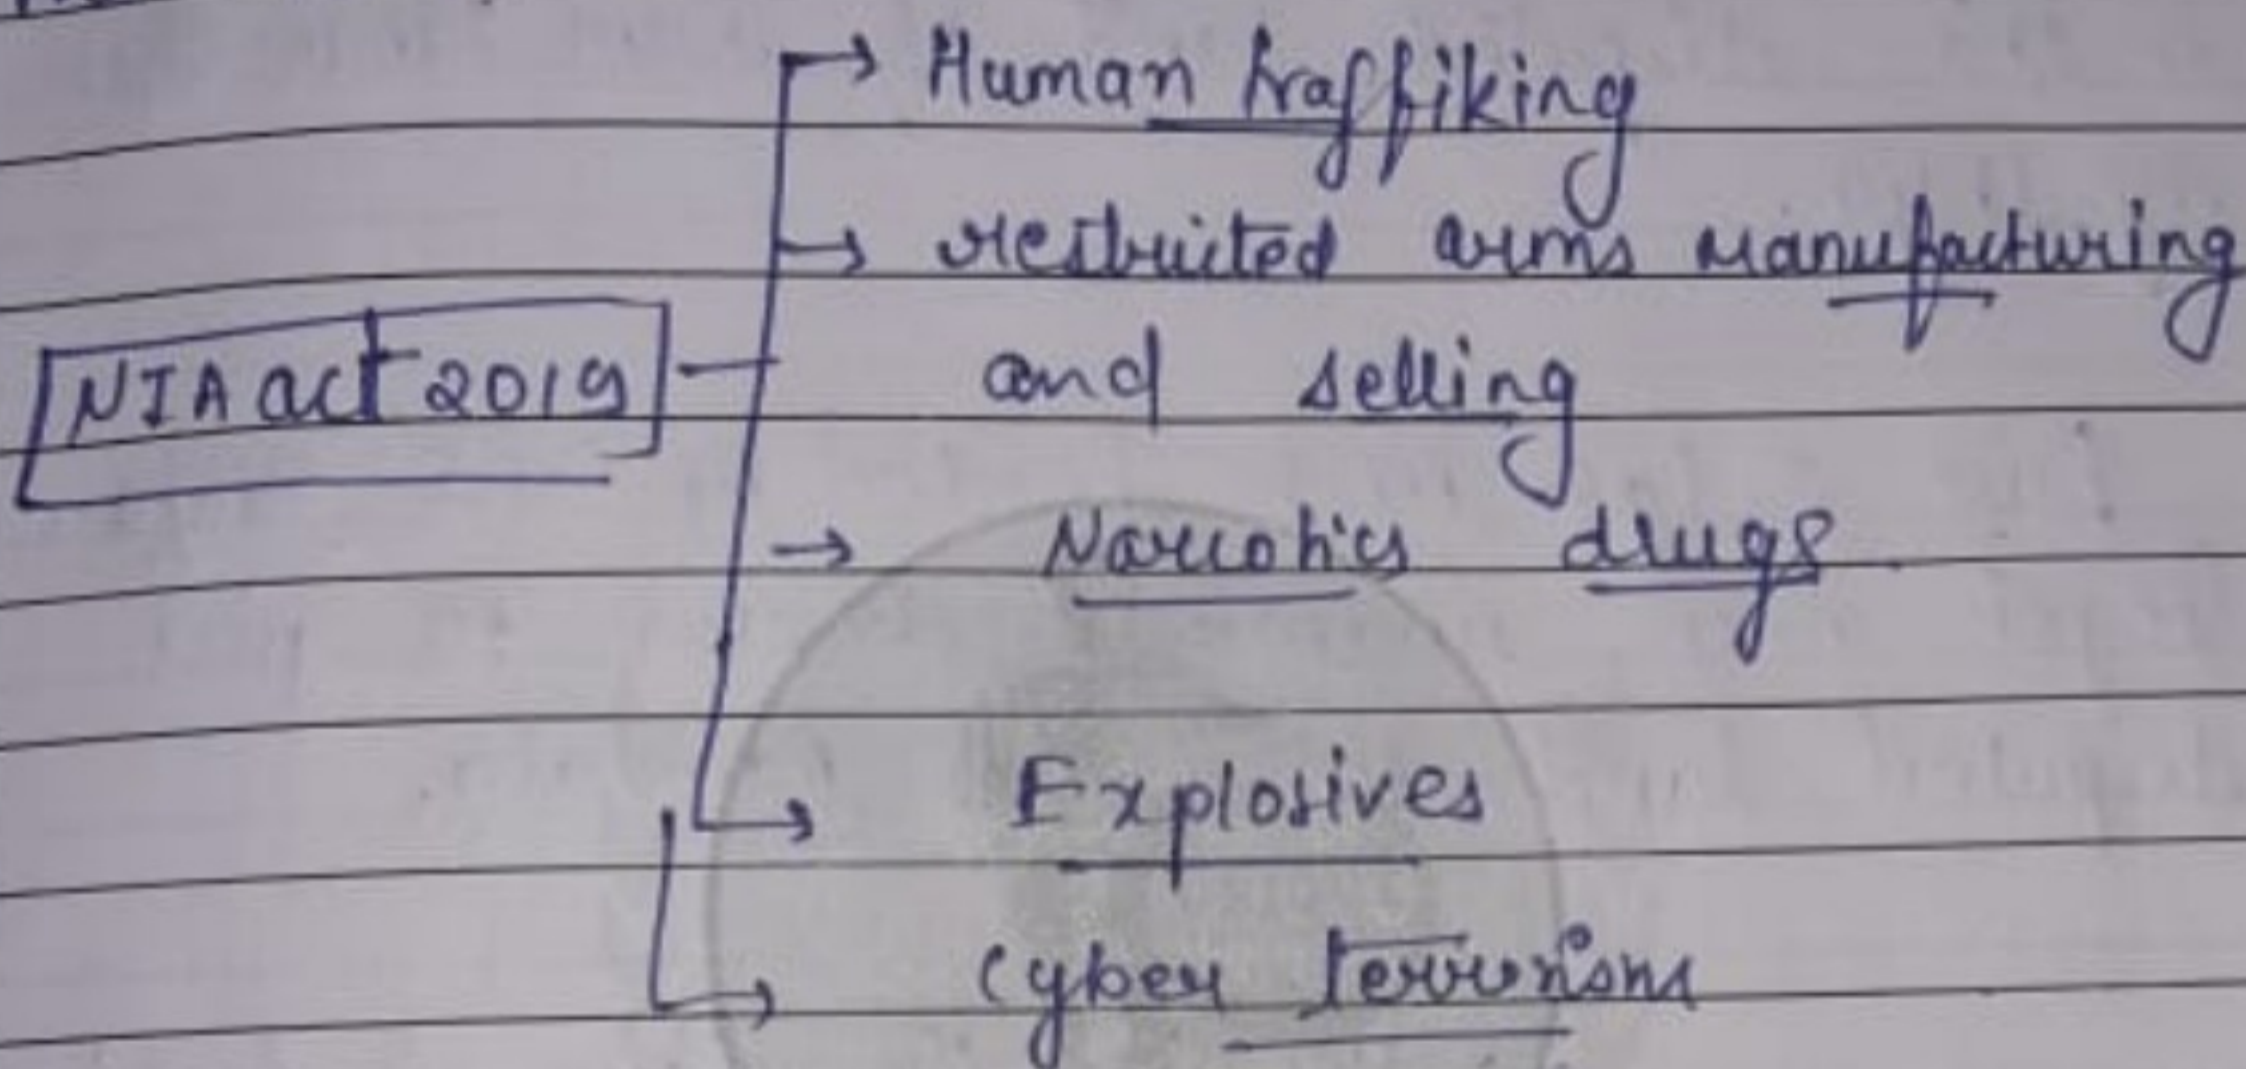 Human traffiking
restricted arms manufacturing
and selling
NIA act 2019
Narcotics drugs
Explosives
Cyber terrorism